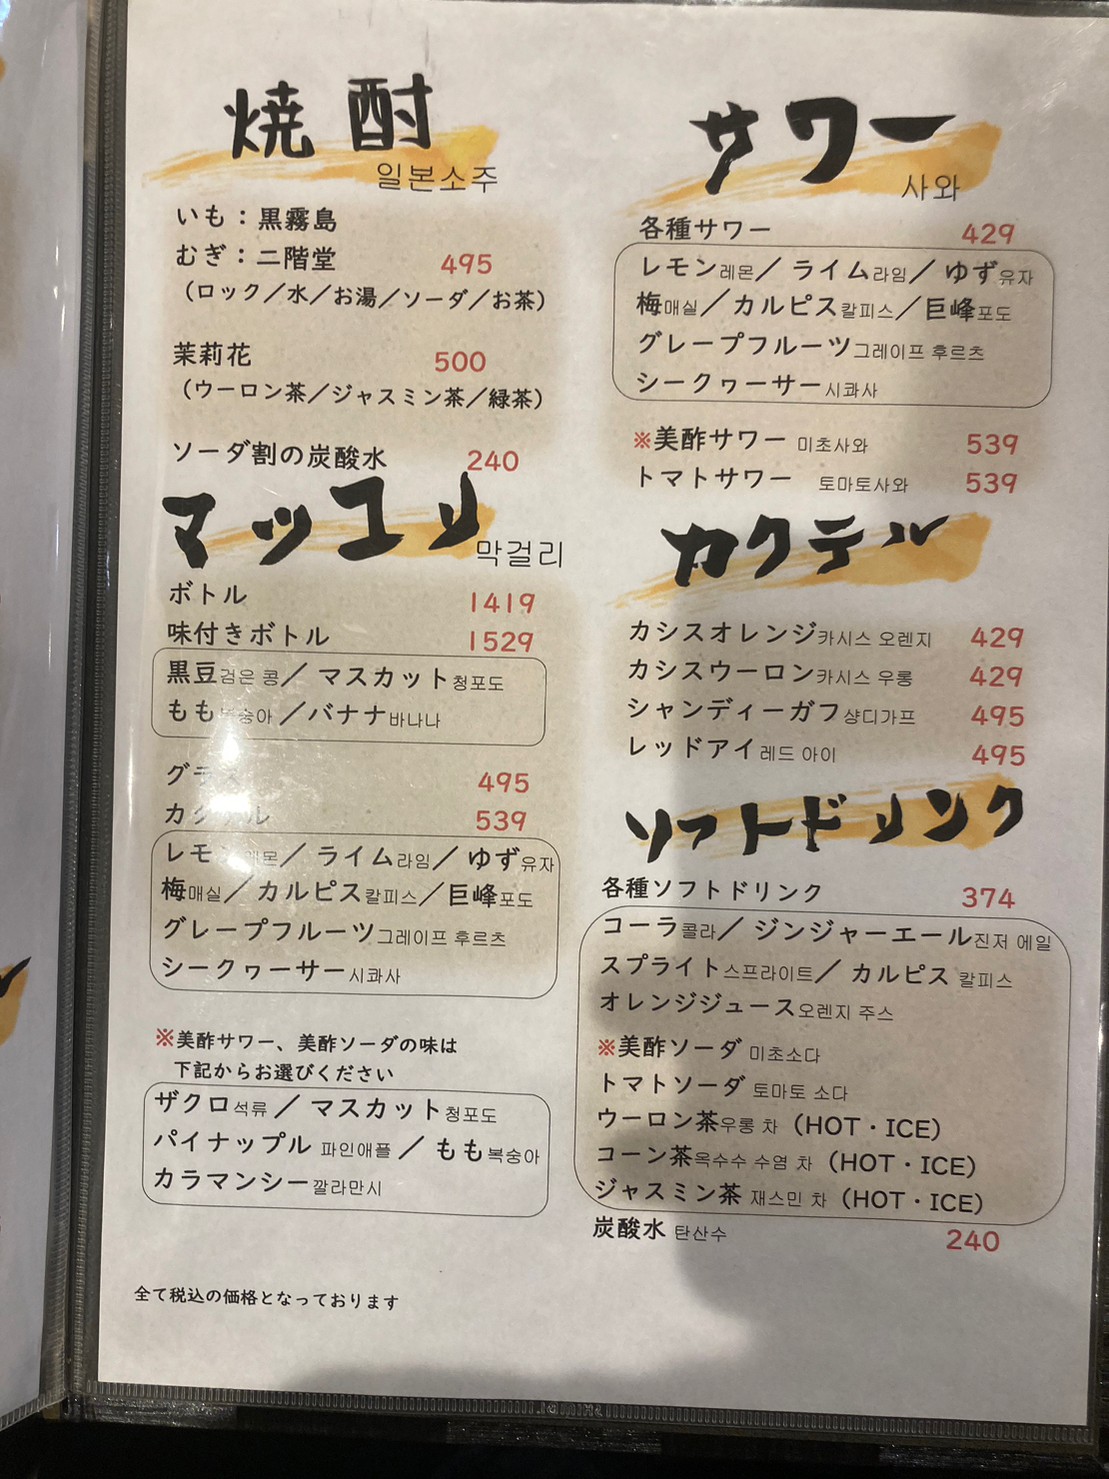 焼酎
일본소주
いも：黒霧島
むぎ：二階堂 495
（ロック／水／お湯／ソーダ／お茶）
茉莉花 500
（ウーロン茶／ジャスミン茶／緑茶）
ソーダ割の炭酸水 240
マッコリ
막걸리
ボトル 1419
味付きボトル 1529
黒豆검은 콩／マスカット청포도
もも복숭아／バナナ바나나
グラス 495
カクテル 539
レモン레몬／ライム라임／ゆず유자
梅매실／カルピス칼피스／巨峰포도
グレープフルーツ그레이프 후르츠
シークヮーサー시콰사
※美酢サワー、美酢ソーダの味は
下記からお選びください
ザクロ석류／マスカット청포도
パイナップル 파인애플／もも복숭아
カラマンシー깔라만시
全て税込の価格となっております
サワー
사와
各種サワー 429
レモン레몬／ライム라임／ゆず유자
梅매실／カルピス칼피스／巨峰포도
グレープフルーツ그레이프 후르츠
シークヮーサー시콰사
※美酢サワー 미초사와 539
トマトサワー 토마토사와 539
カクテル
カシスオレンジ카시스 오렌지 429
カシスウーロン카시스 우롱 429
シャンディーガフ샹디가프 495
レッドアイ레드 아이 495
ソフトドリンク
各種ソフトドリンク 374
コーラ콜라／ジンジャーエール진저 에일
スプライト스프라이트／カルピス 칼피스
オレンジジュース오렌지 주스
※美酢ソーダ 미초소다
トマトソーダ 토마토 소다
ウーロン茶우롱 차（HOT・ICE）
コーン茶옥수수 수염 차（HOT・ICE）
ジャスミン茶 재스민 차（HOT・ICE）
炭酸水 탄산수 240